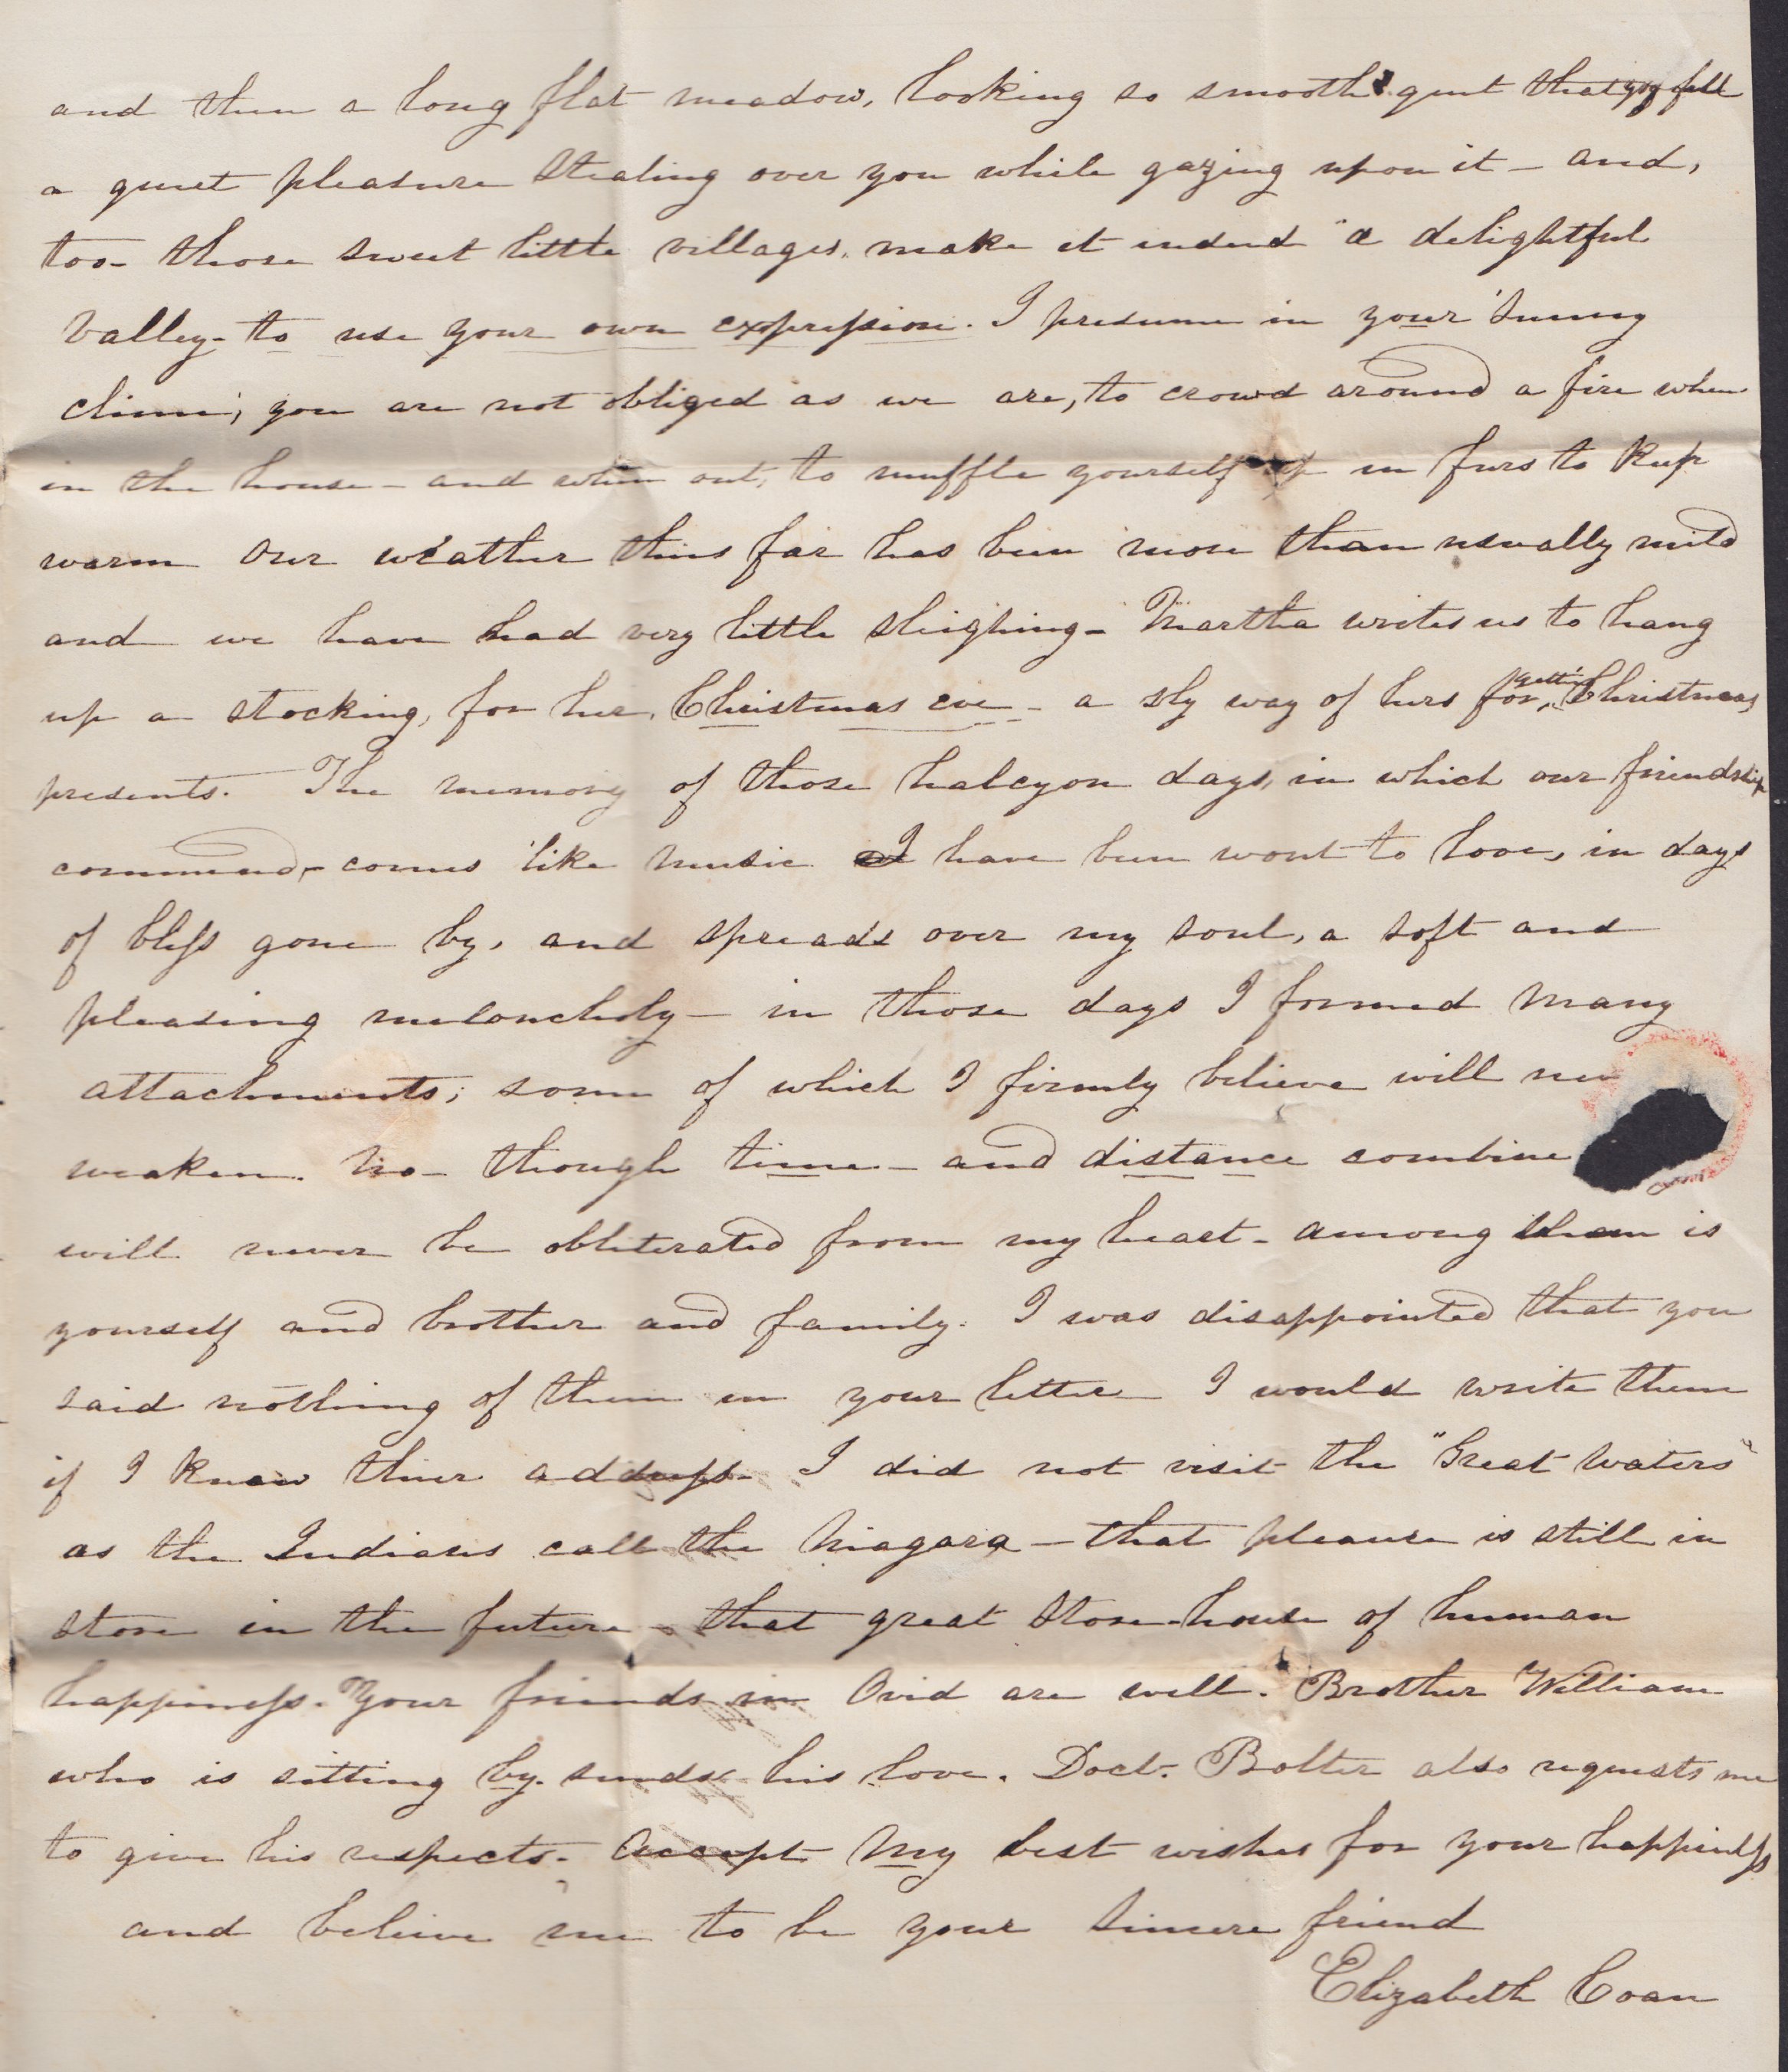 and then a long flat meadow, looking so smooth & quiet that you felt
a quiet pleasure stealing over you while gazing upon it - and,
too - those sweet little villages, make it indeed "a delightful
Valley - to use your own expression. I presume in your 'sunny
clime', you are not obliged as we are, to crowd around a fire when
in the house - and when out, to muffle yourself up in furs to keep
warm Our weather thus far has been more than usually mild
and we have had very little sleighing - Martha writes us to hang
up a stocking, for her, Christmas eve - a sly way of hers for getting Christmas
presents. The memory of those halcyon days, in which our friendship
commenced - comes 'like music I have been wont to love, in days
of bliss gone by, and spreads over my soul, a soft and
pleasing melancholy - in those days I formed many
attachments; some of which I firmly believe will nev
weaken. No - though time - and distance combine
will never be obliterated from my heart - among them is
yourself and brother and family. I was disappointed that you
said nothing of them in your letter - I would write them
if I knew thier address - I did not visit the "Great Waters"
as the Indians call the Niagara - that pleasure is still in
store in the future - that great store-house of human
happiness. Your friends in Ovid are well. Brother William
who is sitting by - sends his love. Doct. Bolter also requests me
to give his respects - Accept my best wishes for your happiness
and believe me to be your sincere friend
Elizabeth Coan